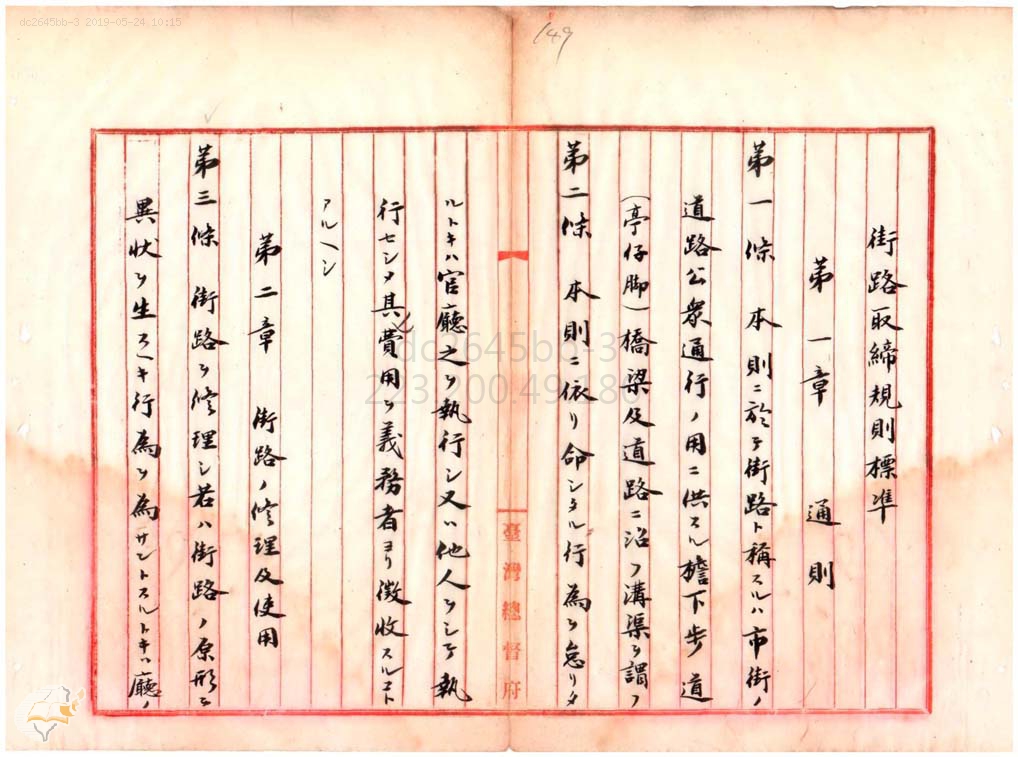 dc2645bb-3 2019-05-24 10:15
149
街路取締規則標準
第一章　通則
第一條　本則ニ於テ街路ト稱スルハ市街ノ
道路公衆通行ノ用ニ供スル檐下步道
(亭仔脚)橋梁及道路ニ沿フ溝渠ヲ謂フ
第二條　本則ニ依リ命シタル行為ヲ怠リタ
ルトキハ官廳之ヲ執行シ又ハ他人ヲシテ執
行セシメ其費用ヲ義務者ヨリ徵收スルコト
アルヘシ
第二章　街路ノ修理及使用
第三條　街路ヲ修理シ若ハ街路ノ原形ニ
異狀ヲ生スヘキ行為ヲ為サントスルトキハ廳ノ
臺灣總督府
dc2645bb-3
223.200.49.180